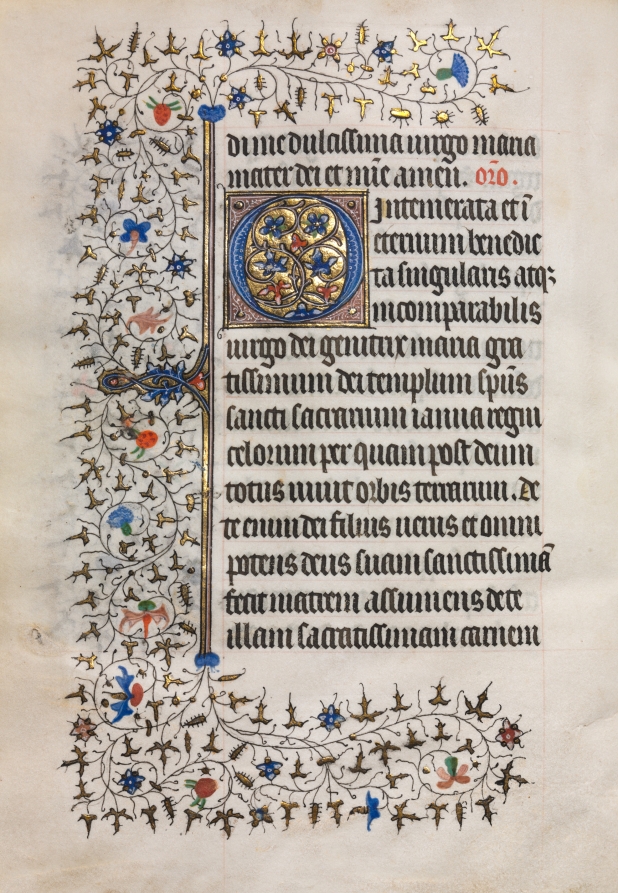 di me dulcissima uirgo maria
mater dei et mīe amen. or̄o.
O Intemerata et ī
eternum benedic
ta singularis atqꝫ
incomparabilis
uirgo dei genitrix maria gra
tissimum dei templum sp̄us
sancti sacrarium ianua regni
celorum per quam post deum
totus uiuit orbis terrarum. De
te enim dei filius uerus et omni
potens deus suam sanctissimā
fecit matrem assumens de te
illam sacratissimam carnem